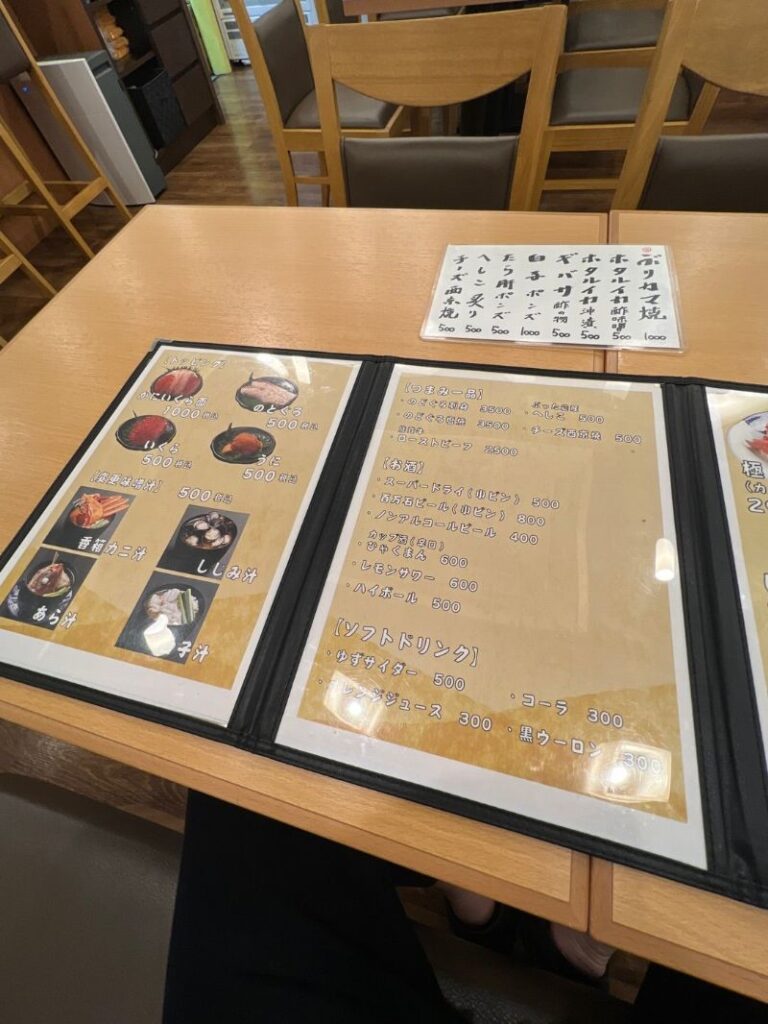 ぶりカマ焼 1000
ホタルイカ酢味噌 500
ホタルイカ沖漬 500
ギバサ酢の物 500
白子ポンズ 1000
たら肝ポンズ 500
へしこ炙り 500
チーズ西京焼 500
【トッピング】
かにいくら
1000税込
のどぐろ
500税込
いくら
500税込
うに
500税込
味噌汁】 500税込
香箱カニ汁
しじみ汁
あら汁
子汁
【つまみ一品】
・のどぐろ刺身 3500
・のどぐろ塩焼 3500
・ローストビーフ 2500
・へしこ 500
・チーズ西京焼 500
【お酒】
・スーパードライ(小ビン) 500
・百万石ビール(小ビン) 800
・ノンアルコールビール 400
カップ酒(辛口)
・ひゃくまん 600
・レモンサワー 600
・ハイボール 500
【ソフトドリンク】
・ゆずサイダー 500
・コーラ 300
レンジジュース 300
・黒ウーロン 300
極
(カ